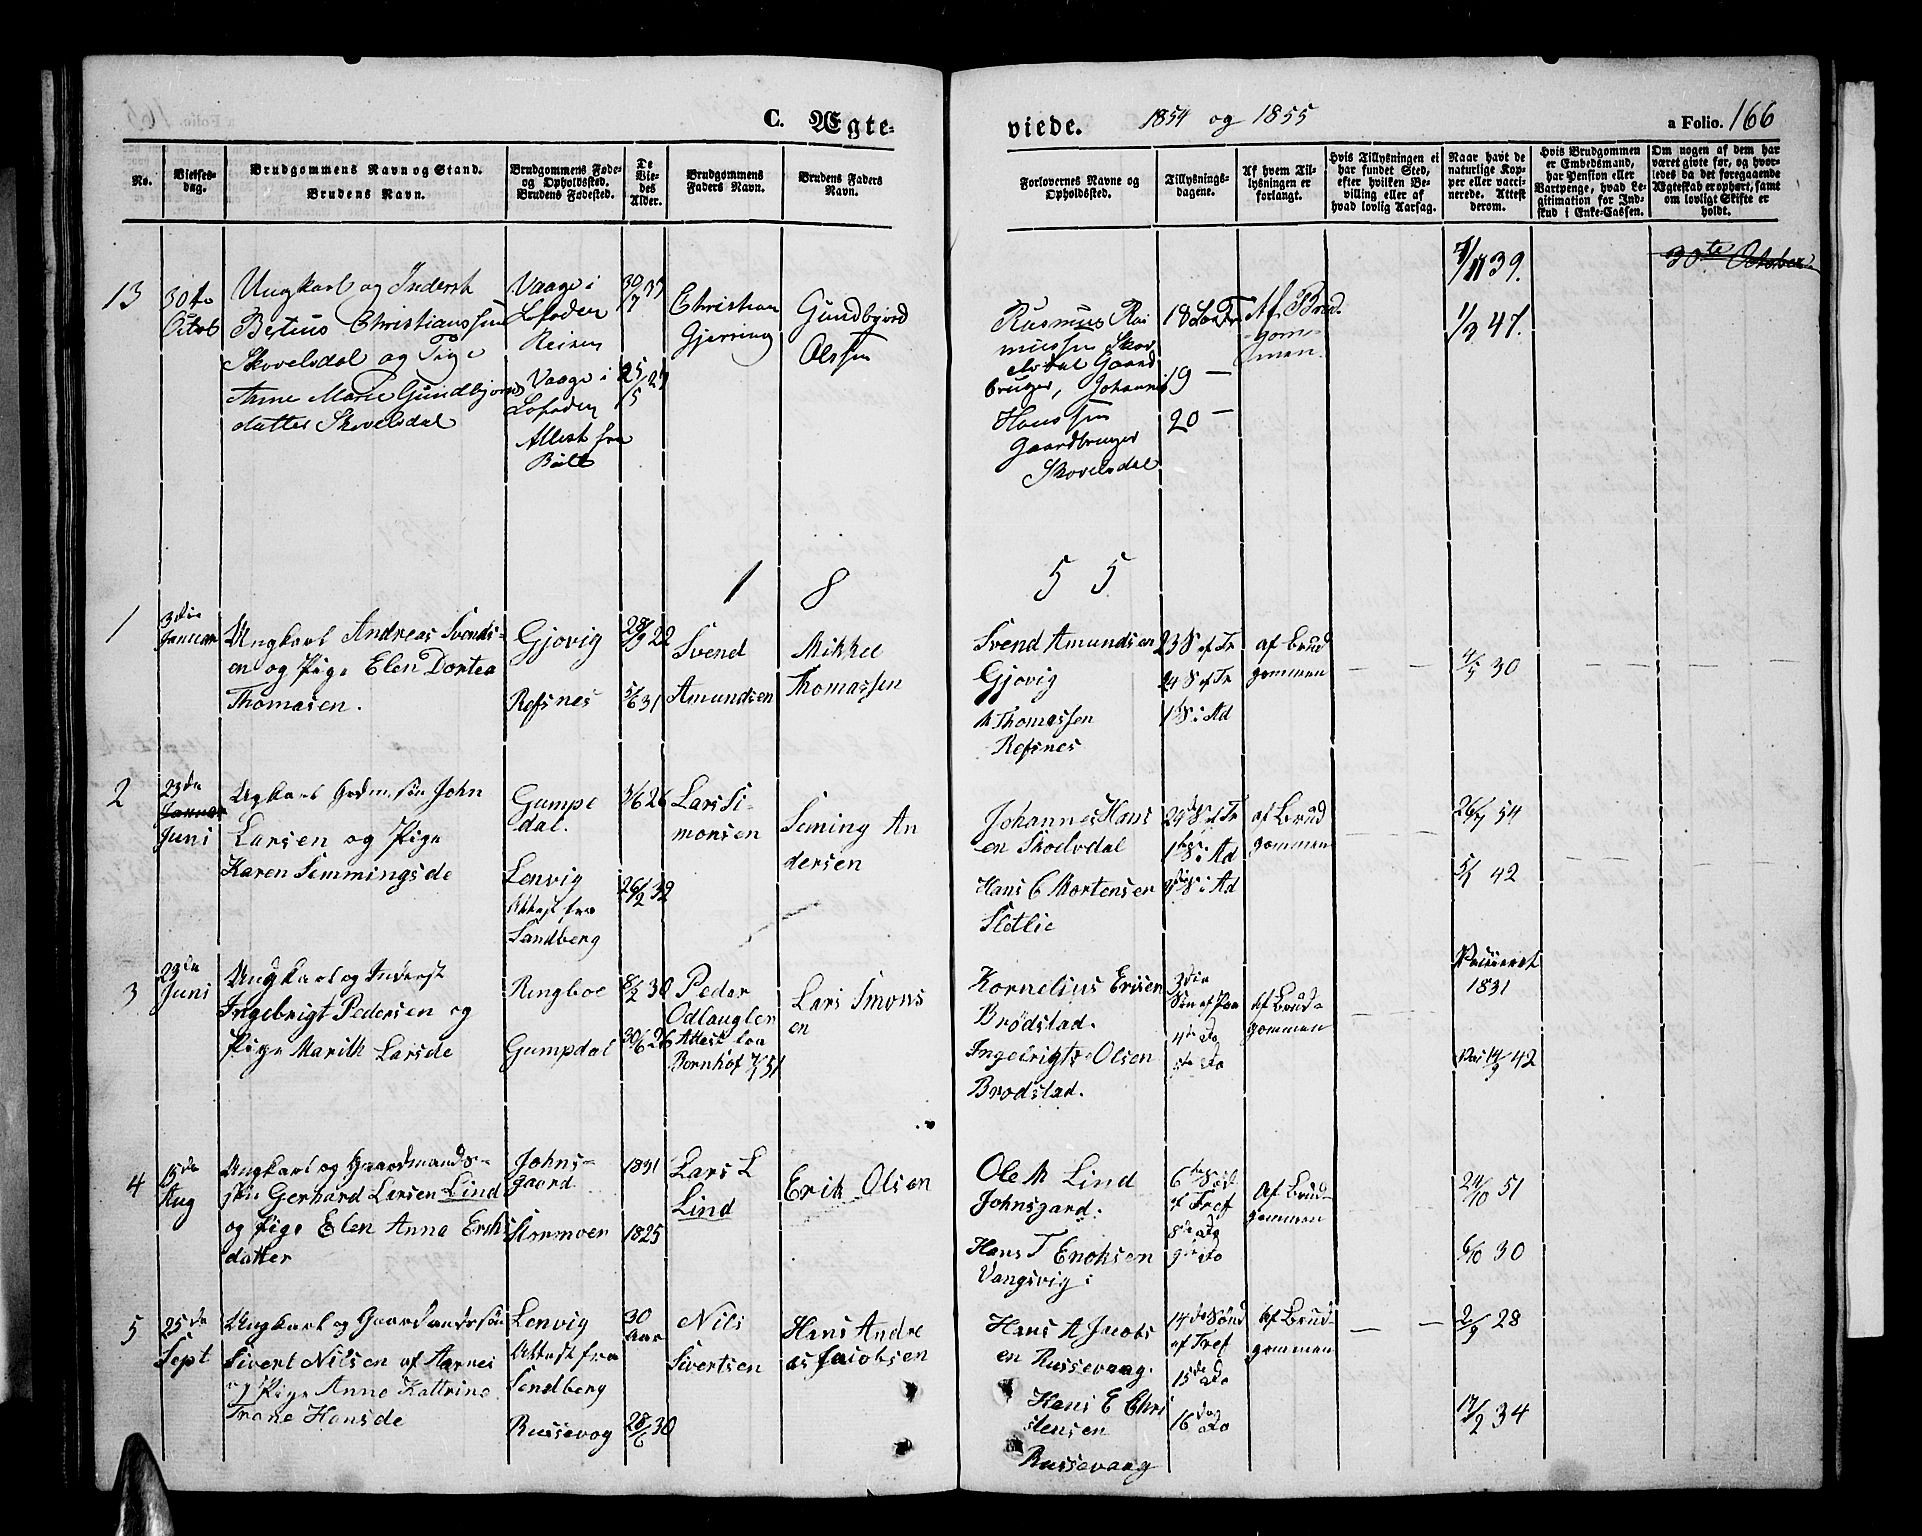 C. Ægte-
viede.
1854 og 1855
a Folio. 166
No.
Vielses-
dag.
Brudgommens Navn og Stand.
Brudens Navn.
Brudgommens Føde-
og Opholdssted.
Brudens Fødested.
De
Vie-
des
Alder.
Brudgommens
Faders Navn.
Brudens Faders
Navn.
Forlovernes Navne og
Opholdssted.
Tillysnings-
dagene.
Af hvem Til-
lysningen er
forlangt.
Hvis Tillysningen ei
har fundet Sted,
efter hvilken Be-
villing eller af
hvad lovlig Aarsag.
Naar havt de
naturlige Kop-
per eller vacci-
nerede. Attest
derom.
Hvis Brudgommen
er Embedsmand,
har Pension eller
Vartpenge, hvad Le-
gitimation for Ind-
skud i Enke-Cassen.
Om nogen af dem har
været givte før, og hvor-
ledes da det foregaaende
Ægteskab er ophørt, samt
om lovligt Skifte er
holdt.
13
30te
Octob
Ungkarl og Inderst
Betius Christianssen
Skovelsdal og Pige
Anne Marie Gundbjørns
datter Skovelsdal
Vaage i
Lofoden
Reisen
Vaage i
Lofoden
Attest fra
30/7
25/5 29
Christian
Gjerring
Gundbjørd
Olssen
Rasmus Ras
mussen Skov
elsdal Gaard
bruger, Johannis
Hanssen
Gaardbruger
Skovelsdal
18 S e Tr
19 —
20 —
Af Brud-
gom-
men.
7/11 39.
1/3 47.
30te October
18 55
1
3die
Januar
Ungkarl Andreas Svends-
en og Pige Elen Dortea
Thomasen.
Gjovig
Refsnes
28/9 22
5/6 31
Svend
Amundsen
Mikkel
Thomassen
Svend Amundsen
Gjovig
M Thomassen
Refsnes
23 S ef Tr
24 S ef Tr
1 S i Ad
af Brud
gommen
4/5 30
2
23de
Januar
Juni
Ugkarl Grdm.søn John
Larsen og Pige
Karen Semmingsde
Gumpe
dal.
Lenvig
Attest fra
Sandberg
3/6 26
26/2 32
Lars Si-
monsen
Seming An
dersen
Johannes Hans
en Skoelvdal
Hans C Mortensen
Sletlie
24de S ef Tr
1ste S i Ad
S i Ad
af Brud
gommen
26/7 54
5/7 42
3
23de
Juni
Ungkarl og Inderst
Ingebrigt Pedersen og
Pige Marith Larsde
Ringboe
Gumpdal
8/2 30
30/6 26
Peder
Attest fra
Lars Simons
en
Kornelius Ersen
Brødstad.
Ingebrigts Olsen
Brodstad.
3die
Søn ef Paa
4de Do
5te Do
af Brud-
gommen
Vaccineret
1831
Vac 14/9 42
4
15de
Aug
Ungkarl og Gaardmands-
søn Gerhard Larsen Lind
og Pige Elen Anna Eriks
datter
Johns-
gaard
Stormoen
1831
1825
Lars L
Lind
Erik Olsen
Ole M Lind
Johnsgard.
Hans T Enoksen
Vangsvig;
6te Sød
ef Tref
8de Do
9de Do
Af Brud-
gommen
24/10 51
6/10 30
5
25de
Sept
Ungkarl og Gaardmandssøn
Sivert Nilsen af Aarnes
og Pige Anne Kattrine
Trane Hansde
Lenvig
Attest fra
Sandberg
Russevog
30
Aar
28/6 30
Nils
Sivertsen
Hans Andre
as Jacobsen
Hans A Jacobs
en Russevaag.
Hans E Chri
stensen
Russevaag
14de Sønd
ef Tref
15de Do
16de Do
Af Brud-
gommen
2/9 28
17/2 34